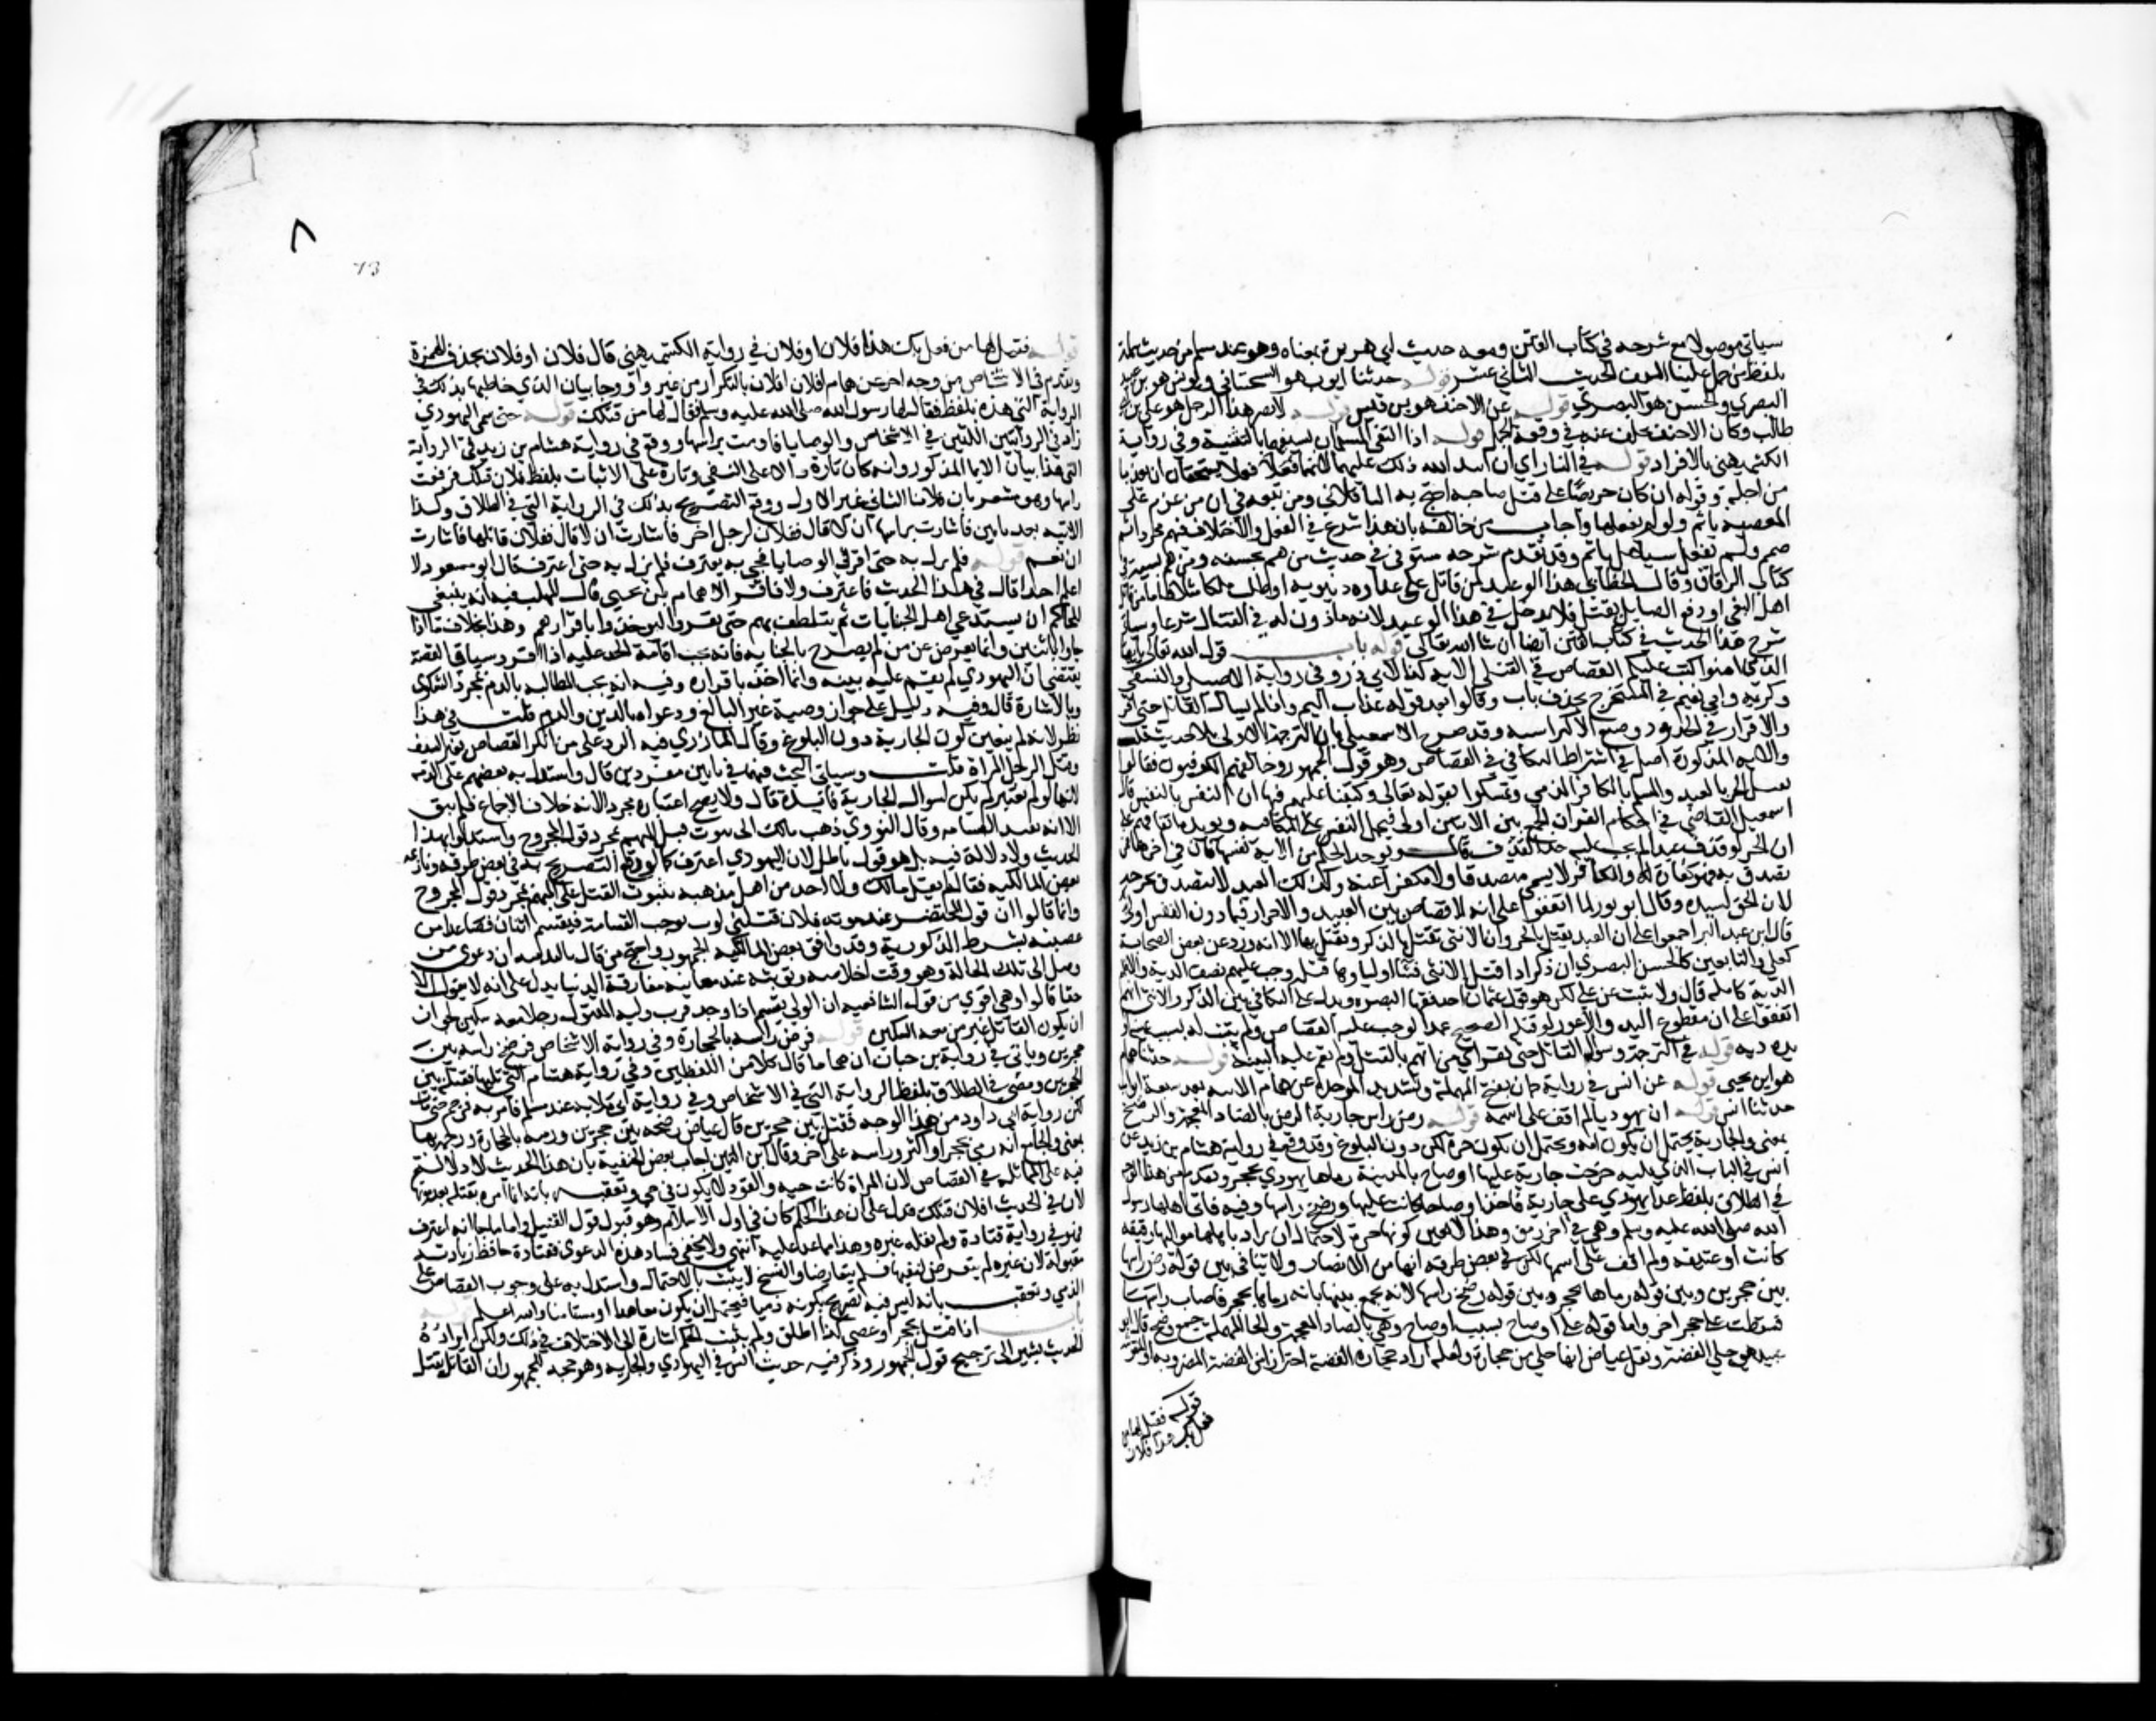 سياتي موصولا مع شرحه في كتاب الفتن ومعه حديث ابي هريرة بمعناه وهو عند مسلم من حديث سلمة
بلفظ من سل علينا السيف الحديث الثاني عشر قوله حدثنا ايوب هو السختياني ويونس هو بن عبيد
البصري والحسن هو البصري قوله عن الاحنف هو بن قيس قوله لانصر هذا الرجل هو علي بن ابي
طالب وكان الاحنف تخلف عنه في وقعة الجمل قوله اذا التقى المسلمان بسيفيهما بالتثنية وفي رواية
الكشميهني بالافراد قوله في النار اي ان انفذ الله ذلك عليهما لانهما فعلا فعلا يستحقان ان يعذبا
من اجله وقوله ان كان حريصا على قتل صاحبه احتج به الباقلاني ومن تبعه في ان من عزم على
المعصية ياثم ولو لم يفعلها واجاب من خالفه بان هذا شرع في الفعل والاختلاف فيمن هم مجردا ثم
صمم ولم يفعل شيا هل ياثم وقد تقدم شرحه مستوفى في حديث من هم بحسنة ومن هم بسيئة في
كتاب الرقاق وقال الخطابي هذا الوعيد لمن قاتل على عداوة دنيوية او طلب ملك مثلا فاما من قاتل
اهل البغي او دفع الصايل فقتل فلا يدخل في هذا الوعيد لانه ماذون له في القتال شرعا وسياتي
شرح هذا الحديث في كتاب الفتن ايضا ان شا الله تعالى قوله باب قول الله تعالى يا ايها
الذين امنوا كتب عليكم القصاص في القتلى الاية كذا لابي ذر وفي رواية الاصيلي والنسفي
وكريمة وابي نعيم في المستخرج بحذف باب وقالوا بعد قوله عذاب اليم واذا لم يسال القاتل حتى اقر
والاقرار في الحدود وصنع الاكثر اشبه وقد صرح الاسمعيلي بان الترجمة الاولى بلا حديث قلت
والاية المذكورة اصل في اشتراط التكافي في القصاص وهو قول الجمهور وخالفهم الكوفيون فقالوا
يقتل الحر بالعبد والمسلم بالكافر الذمي وتمسكوا بقوله تعالى وكتبنا عليهم فيها ان النفس بالنفس قال
اسمعيل القاضي في احكام القران الجمع بين الايتين اولى فيحمل النفس على المكافية ويؤيده اتفاقهم على
ان الحر لو قذف عبدا لم يجب عليه حد القذف قال ويوخذ الحكم من الاية نفسها فان في اخرها فمن
تصدق به فهو كفارة له والكافر لا يسمى متصدقا ولا مكفرا عنه وكذلك العبد لا يتصدق بجرحه
لان الحق لسيده وقال ابو ثور لما اتفقوا على انه لا قصاص بين العبيد والاحرار فيما دون النفس اولى
قال ابن عبد البر اجمعوا على ان العبد يقتل بالحر وان الانثى تقتل بالذكر ويقتل بها الا انه ورد عن بعض الصحابة
كعلي والتابعين كالحسن البصري ان ذكرا اذا قتل الانثى فشا اوليا وها قتله وجب عليهم نصف الدية والا فلهم
الدية كاملة قال ولا يثبت عن علي لكن هو قول عثمان احد فقها البصرة ويدل على التكافي بين الذكر والانثى انهم
اتفقوا على ان مقطوع اليد والاعور لو قتله الصحيح عمدا لوجب عليه القصاص ولم يجب له بسبب عينه او
يده دية قوله في الترجمة وسوال القاتل حتى يقر اي من اتهم بالقتل ولم تقم عليه البينة قوله حدثنا همام
هو ابن يحيى قوله عن انس في رواية حبان بفتح المهملة وتشديد الموحدة عن همام الاتية بعد سبعة ابواب
حدثنا انس قوله ان يهوديا لم اقف على اسمه قوله رض راس جارية الرض بالضاد المعجمة والرضخ
بمعنى والجارية يحتمل ان يكون امة ويحتمل ان يكون حرة لكن دون البلوغ وقد وقع في رواية هشام بن زيد عن
انس في الباب الذي يليه خرجت جارية عليها اوضاح بالمدينة رماها يهودي بحجر وتقدم من هذا الوجه
في الطلاق بلفظ عدا يهودي على جارية فاخذ اوضاحا كانت عليها ورضخ راسها وفيه فاتى اهلها رسول
الله صلى الله عليه وسلم وهي في اخر رمق وهذا لا يعين كونها حرة لاحتمال ان يراد باهلها مواليها رقيقة
كانت او عتيقة ولم اقف على اسمها لكن في بعض طرقه انها من الانصار ولا تنافي بين قوله رض راسها
بين حجرين وبين قوله رماها بحجر وبين قوله رضخ راسها لانه يجمع بينها بانه رماها بحجر فاصاب راسها
فسقطت على حجر اخر واما قوله على اوضاح بسبب اوضاح وهي بالضاد المعجمة والحا المهملة جمع وضح قال ابو
عبيد هي حلي الفضة ونقل عياض انها حلي من حجارة ولعله اراد حجارة الفضة احترازا من الفضة المضروبة او المنقوشة
قوله فقيل لها من
فعل بك هذا فلان
٨
73
قوله فقيل لها من فعل بك هذا افلان او فلان في رواية الكشميهني قال فلان او فلان بحذف الهمزة
وتقدم في الاشخاص من وجه اخر عن همام افلان افلان بالتكرار من غير واو وجا بيان الذي خاطبها بذلك في
الرواية التي هذه بلفظ فقال لها رسول الله صلى الله عليه وسلم فقال لها من قتلك قوله حتى سمي اليهودي
زاد في الروايتين اللتين في الاشخاص والوصايا فاومت براسها ووقع في رواية هشام بن زيد في الرواية
التي هذا بيان الايما المذكور وانه كان تارة دالا على النفي وتارة على الاثبات بلفظ فلان قتلك فرفعت
راسها وهو مشعر بان فلانا الثاني غير الاول ووقع التصريح بذلك في الرواية التي في الطلاق وكذا
الاتية بعد بابين فاشارت براسها ان لا قال ففلان لرجل اخر فاشارت ان لا قال ففلان قاتلها فاشارت
ان نعم قوله فلم يزل به حتى اقر في الوصايا فجي به يعترف فلم يزل به حتى اعترف قال ابو مسعود لا
اعلم احدا قال في هذا الحديث فاعترف ولا فاقر الا همام بن يحيى قال المهلب فيه انه ينبغي
للحاكم ان يستدعي اهل الجنايات ثم يتلطف بهم حتى يقروا ليوخذوا باقرارهم وهذا بخلاف ما اذا
جاوا تائبين وانما يعرض عن من لم يصرح بالجناية فانه يجب اقامة الحد عليه اذا اقر وسياق القصة
يقتضي ان اليهودي لم تقم عليه بينة وانما اخذ باقراره وفيه انه تجب المطالبة بالدم بمجرد الشكوى
وبالاشارة قال وفيه دليل على جواز وصية غير البالغ ودعواه بالدين والدم قلت في هذا
نظر لانه لم يتعين كون الجارية دون البلوغ وقال المازري فيه الرد على من انكر القصاص بغير السيف
وقتل الرجل المراة قلت وسياتي البحث فيهما في بابين مفردين قال واستدل به بعضهم على التدمية
لانها لو لم تعتبر لم يكن لسوال الجارية فائدة قال ولا يصح اعتباره مجردا لانه خلاف الاجماع فلم يبق
الا انه يفيد القسامة وقال النووي ذهب مالك الى ثبوت قتل المتهم بمجرد قول المجروح واستدلوا بهذا
الحديث ولا دلالة فيه بل هو قول باطل لان اليهودي اعترف كما وقع التصريح به في بعض طرقه ونازعه
بعض المالكية فقال لم يقل مالك ولا احد من اهل مذهبه بثبوت القتل على المتهم بمجرد قول المجروح
وانما قالوا ان قول المحتضر عند موته فلان قتلني لوث يوجب القسامة فيقسم اثنان فصاعدا من
عصبته بشرط الذكورية وقد وافق بعض المالكية الجمهور واحتج من قال بالتدمية ان دعوى من
وصل الى تلك الحالة وهو وقت اخلاصه وتوبته عند معاينة مفارقة الدنيا يدل على انه لا يقول الا
حقا قالوا وهي اقوى من قول الشافعية ان الولي يقسم اذا وجد قرب وليه المقتول رجلا معه سكين لجواز ان
ان يكون القاتل غير من معه السكين قوله فرض راسه بالحجارة وفي رواية الاشخاص فرضخ راسه بين
حجرين وياتي في رواية بن حبان ان هماما قال كلا من اللفظين وفي رواية هشام التي تليها فقتله بين
الحجرين ومضى في الطلاق بلفظ الرواية التي في الاشخاص وفي رواية ابي قلابة عند مسلم فامر به فرجم حتى مات
لكن رواية ابي داود من هذا الوجه فقتل بين حجرين قال عياض رضخه بين حجرين ورميه بالحجارة ورجمه بها
بمعنى والجامع انه رمي بحجر او اكثر وراسه على اخر وقال ابن التين اجاب بعض الحنفية بان هذا الحديث لا دلالة
فيه على المماثلة في القصاص لان المراة كانت حية والقود لا يكون في حي وتعقبه بانه انما امر بقتله بعد موتها
لان في الحديث افلان قتلك فدل على ان هذا الحكم كان في اول الاسلام وهو قبول قول القتيل واما ما جا انه اعترف
فهو في رواية قتادة ولم يقله غيره وهذا مما عد عليه انتهى ولا يخفى فساد هذه الدعوى فقتادة حافظ زيادته
مقبولة لان غيره لم يتعرض لنفيها فلم يتعارضا والنسخ لا يثبت بالاحتمال واستدل به على وجوب القصاص على
الذمي وتعقب بانه ليس فيه تصريح بكونه ذميا فيحتمل ان يكون معاهدا او مستامنا والله اعلم قوله
باب اذا قتل بحجر او عصى كذا اطلق ولم يثبت الحكم اشارة الى الاختلاف في ذلك ولكن ايراده
الحديث يشير الى ترجيح قول الجمهور وذكر فيه حديث انس في اليهودي والجارية وهو حجة للجمهور ان القاتل يقتل